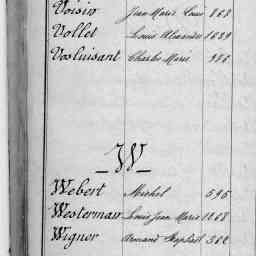 Voisin Jean Marie Louis 868
Vollet Louis Alexandre 1629
Vosluisant Charles Marie 986
W
Webert Michel 596
Westerman Louis Jean Marie 1268
Wignor Armand 362